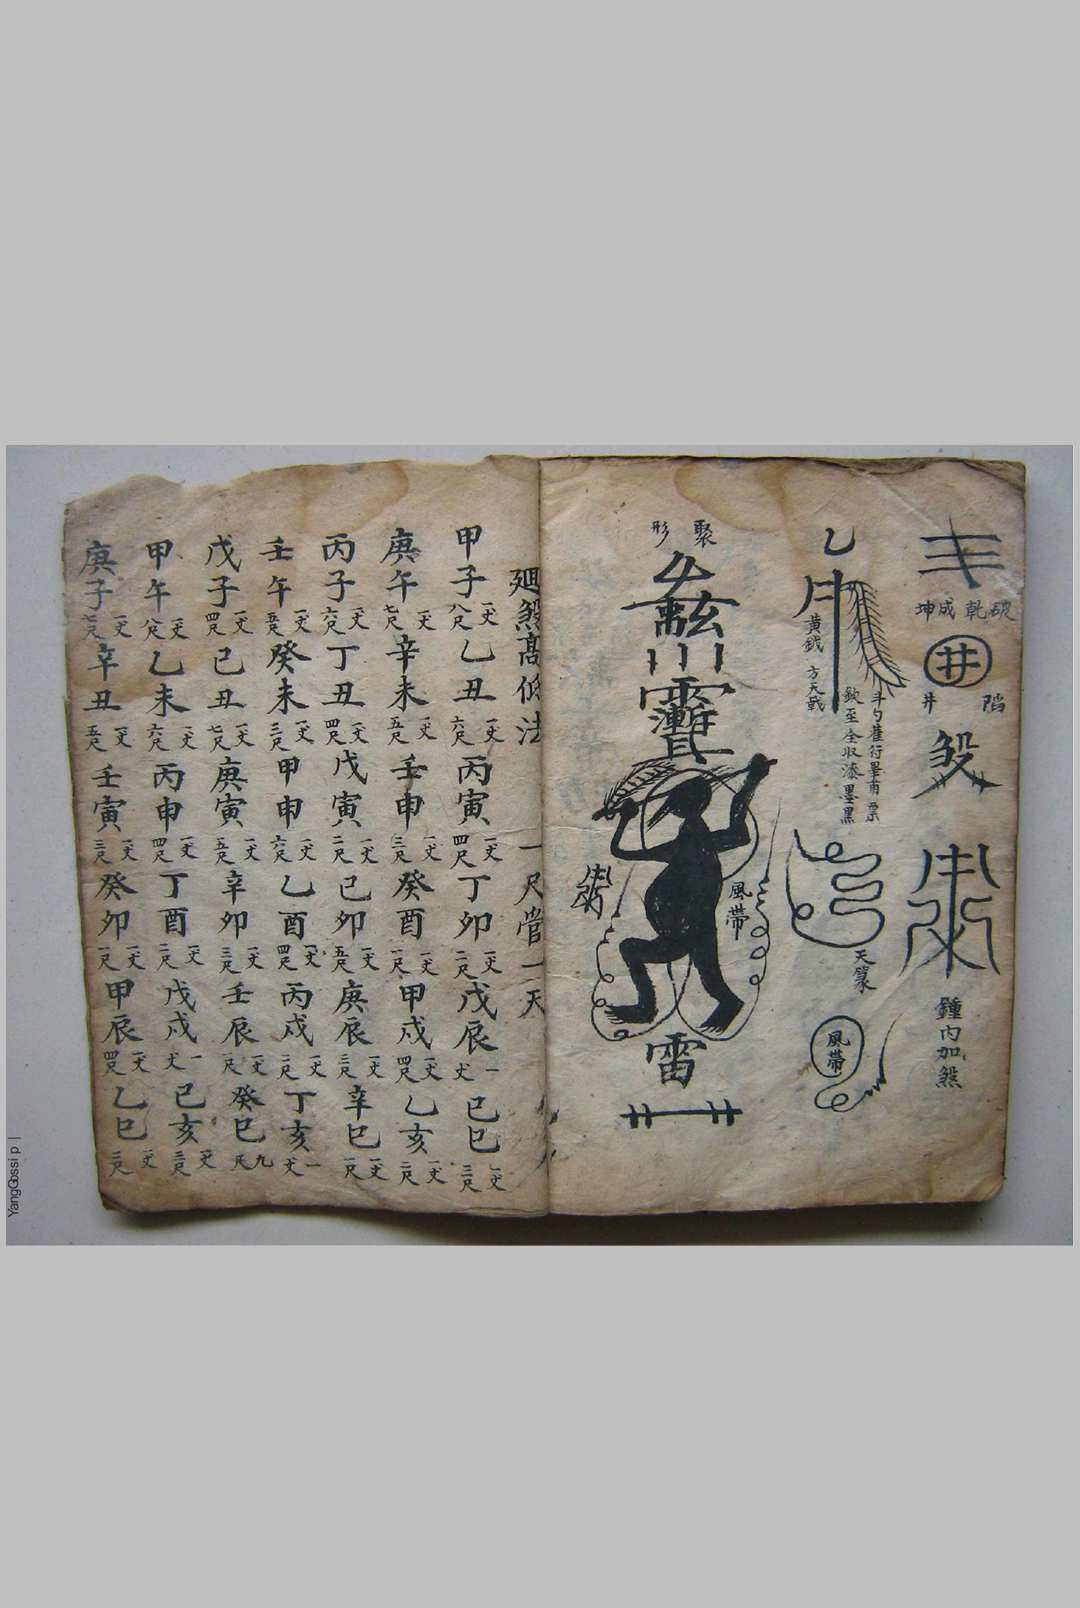 破乾成坤
井
陷井
煞
鐘內加煞
乙
月
黃鉞
方天戟
天篆
風帶
聚形
風帶
雷
廻煞髙低法 一尺管一天
甲子一丈八尺 乙丑一丈六尺 丙寅一丈四尺 丁卯一丈二尺 戊辰一丈 己巳一丈三尺
庚午一丈七尺 辛未一丈五尺 壬申一丈三尺 癸酉一丈一尺 甲戌一丈四尺 乙亥一丈二尺
丙子一丈六尺 丁丑一丈四尺 戊寅一丈二尺 己卯一丈五尺 庚辰一丈三尺 辛巳一丈一尺
壬午一丈五尺 癸未一丈三尺 甲申一丈六尺 乙酉一丈四尺 丙戌一丈二尺 丁亥一丈
戊子一丈四尺 己丑一丈七尺 庚寅一丈五尺 辛卯一丈三尺 壬辰一丈一尺 癸巳九尺
甲午一丈八尺 乙未一丈六尺 丙申一丈四尺 丁酉一丈二尺 戊戌一丈 己亥一丈三尺
庚子一丈七尺 辛丑一丈五尺 壬寅一丈三尺 癸卯一丈一尺 甲辰一丈四尺 乙巳一丈二尺
YangGossip |